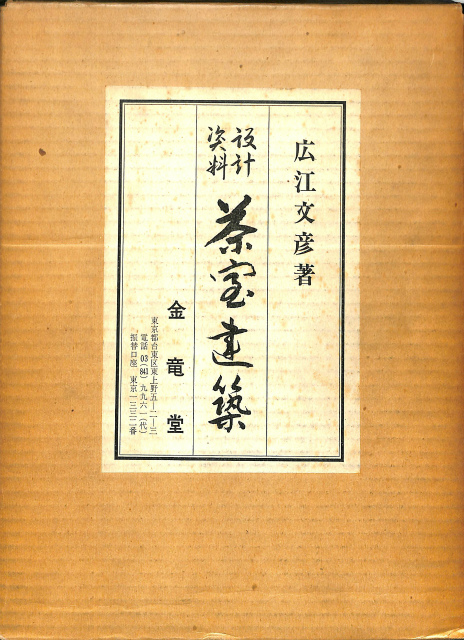 広江文彦著
設計
資料
茶室建築
金竜堂
東京都台東区東上野五−二−三
電話 03(843)九九六一(代)
振替口座 東京一三三二番